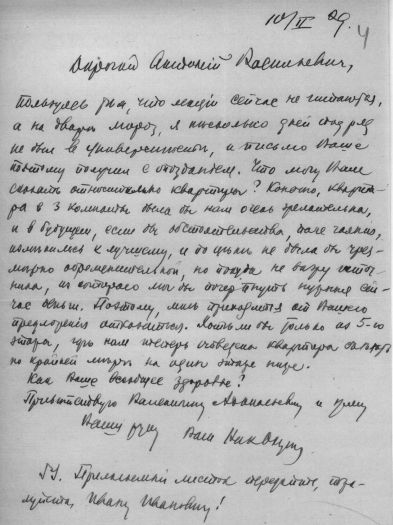 10/II 29.
4
Дорогой Анатолій Васильевич,
Пользуясь тем, что лекции сейчас не читаются,
а на дворе мороз, я несколько дней подряд
не был в Университете, и письмо Ваше
поэтому получил с опозданием. Что могу Вам
сказать относительно квартиры? Конечно, кварти-
ра в 3 комнаты была бы нам очень желательна,
и в будущем, если бы обстоятельства, паче чаяния,
изменились к лучшему, и по цене не была бы чрез-
мерно обременительной, но покуда не вижу источ-
ника, из которого мог бы почерпнуть нужные сей-
час деньги. Поэтому, мысль приходится от Вашего
предложения отказаться. Хотели бы только из 5-го
этажа, где нам теперь отведена квартира
по крайней мере на один этаж ниже.
Как Ваше вообще здоровье?
Приветствую Валентину Афанасьевну и жму
Вашу руку Ваш Ник
P.S. Прилагаемый листок передайте, пожа-
луйста, Ивану Ивановичу!